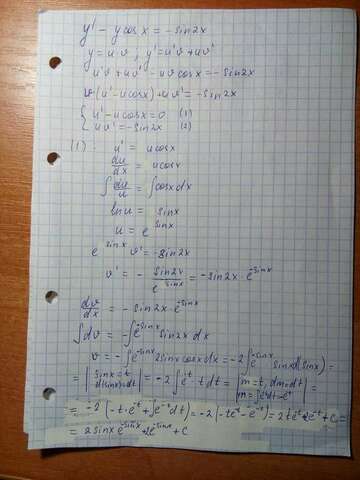 y' - y cos x = - sin2x
y = uv ; y' = u'v + uv'
u'v + uv' - uv cos x = - sin2x
v(u' - u cos x) + uv' = - sin2x
{ u' - u cos x = 0 (1)
uv' = - sin2x (2)
(1) : u' = u cos x
du/dx = u cos x
∫ du/u = ∫ cos x dx
ln u = sin x
u = e^sinx
e^sinx v' = - sin2x
v' = - sin2x / e^sinx = - sin2x · e^-sinx
dv/dx = - sin2x · e^-sinx
∫ dv = - ∫ e^-sinx sin2x dx
v = - ∫ e^-sinx 2 sin x cos x dx = -2 ∫ e^-sinx sin x d(sin x) =
= | sin x = t d(sin x) = dt | = -2 ∫ e^-t t dt = | m = t, dm = dt
= -2 (- t · e^-t + ∫ e^-t dt) = -2 (- t e^-t - e^-t) = 2 t e^-t + 2 e^-t + C =
= 2 sin x e^-sinx + 2 e^-sinx + C